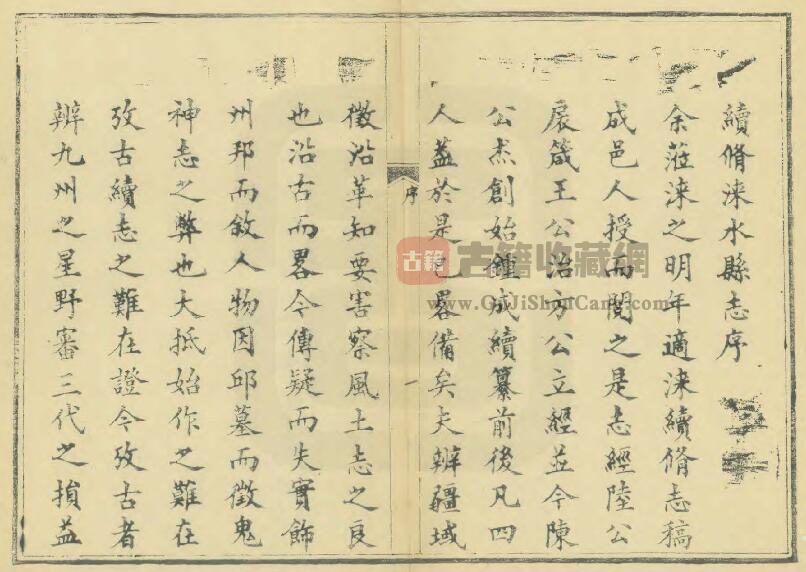 續脩淶水縣志序
余蒞淶之明年適淶續脩志稿
成邑人授而閱之是志經陸公
宸箴王公治方公立經並今陳
公杰創始鍾成續纂前後凡四
人葢於是邑畧備矣夫辨疆域
序
一
徵沿革知要害察風土志之良
也沿古而畧今傳疑而失實飾
州邦而敘人物因邱墓而徵鬼
神志之弊也大抵始作之難在
攷古續志之難在證今攷古者
辨九州之星野審三代之損益
古籍
古籍收藏網
www.GuJiShuCang.com